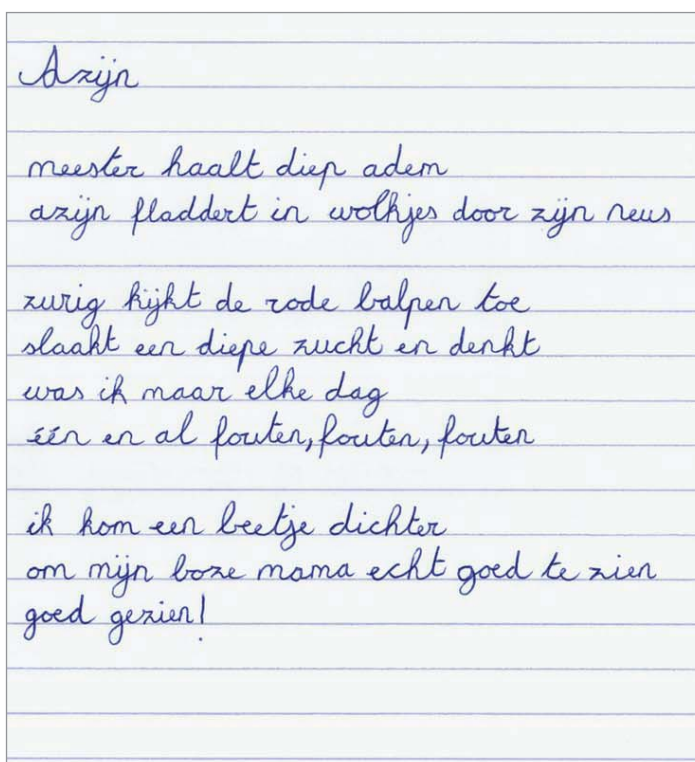 Azijn
meester haalt diep adem
azijn fladdert in wolkjes door zijn neus
zurig kijkt de rode balpen toe
slaakt een diepe zucht en denkt
was ik maar elke dag
één en al fouten, fouten, fouten
ik kom een beetje dichter
om mijn boze mama echt goed te zien
goed gezien!